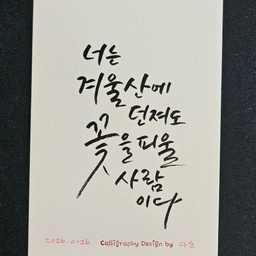 너는
겨울산에
던져도
꽃을피울
사람
이다
2026.01.26 Calligraphy Design by 다소